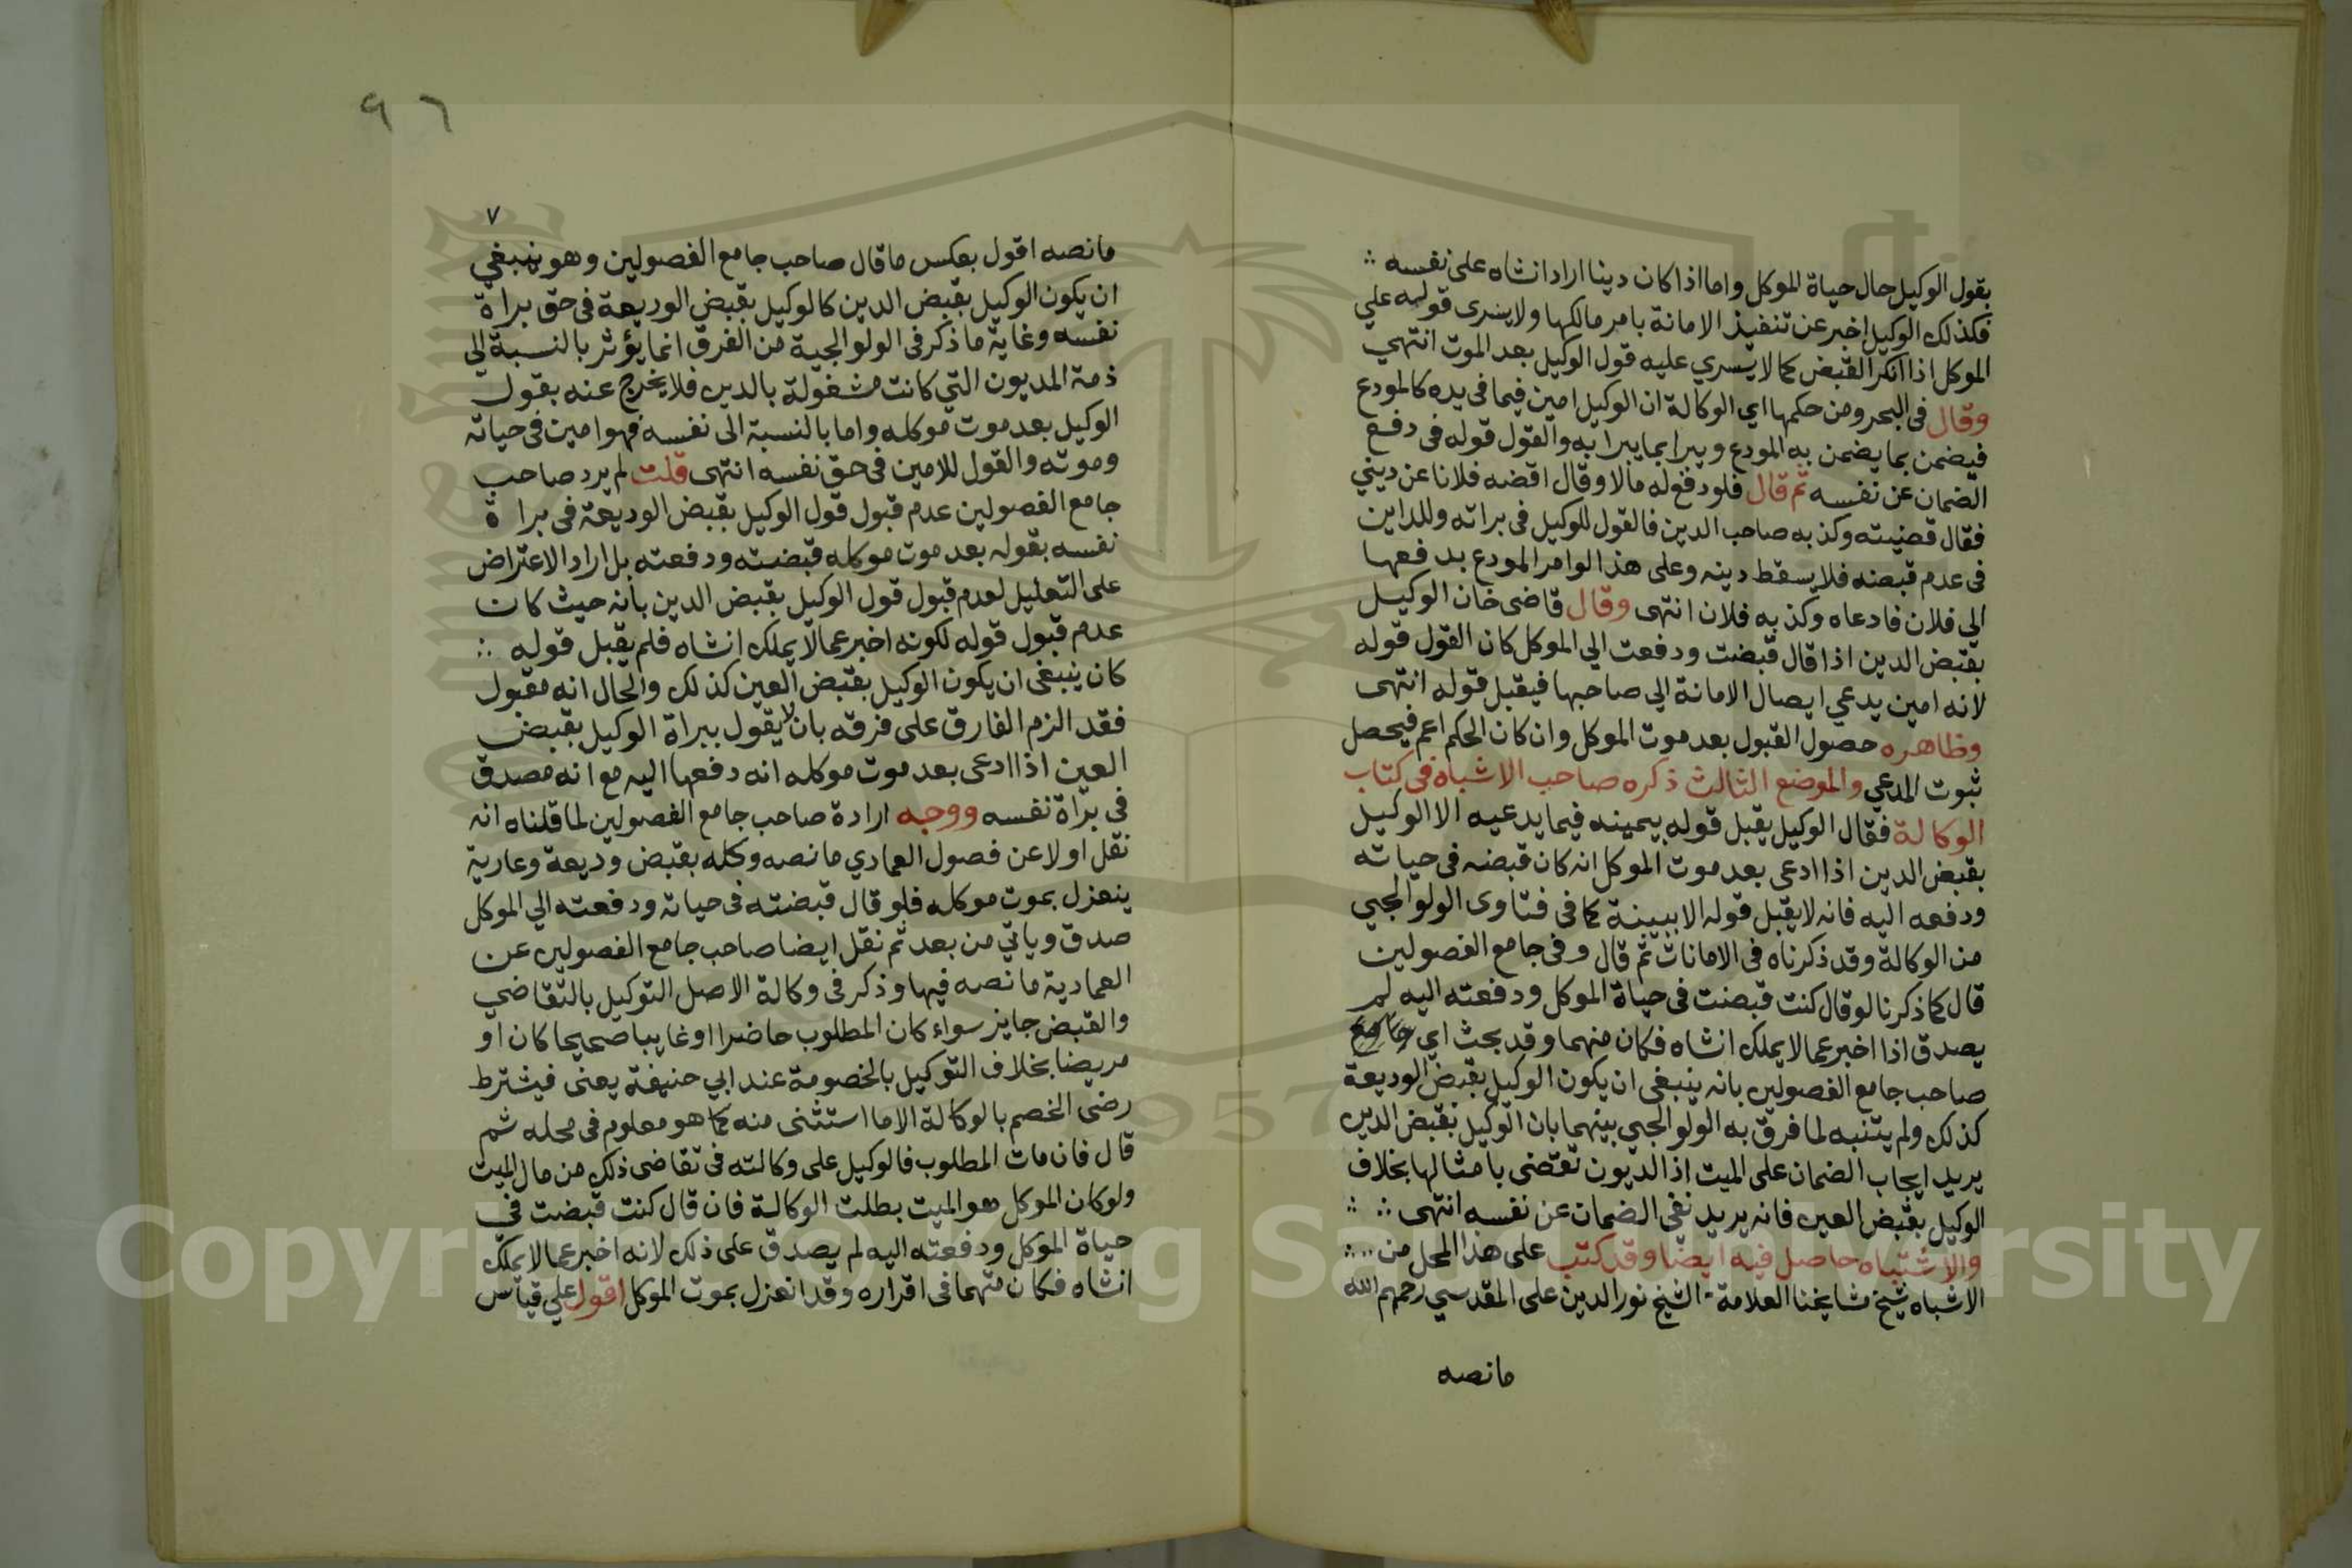 بقول الوكيل حال حياة الموكل واما اذا كان دينا اراد انشاه على نفسه
فكذلك الوكيل اخبر عن تنفيذ الامانة بامر مالكها ولا يسرى قوله علي
الموكل اذا انكر القبض كما لا يسري عليه قول الوكيل بعد الموت انتهي
وقال في البحر ومن حكمها اي الوكالة ان الوكيل امين فيما في يده كالمودع
فيضمن بما يضمن به المودع ويبرا بما يبرا به والقول قوله في دفع
الضمان عن نفسه ثم قال فلو دفع له مالا وقال اقضه فلانا عن ديني
فقال قضيته وكذبه صاحب الدين فالقول للوكيل في براته وللداين
في عدم قبضه فلا يسقط دينه وعلى هذا لو امر المودع بدفعها
الي فلان فادعاه وكذبه فلان انتهى وقال قاضى خان الوكيل
بقبض الدين اذا قال قبضت ودفعت الي الموكل كان القول قوله
لانه امين يدعي ايصال الامانة الي صاحبها فيقبل قوله انتهى
وظاهره حصول القبول بعد موت الموكل وان كان الحكم اعم فيحصل
ثبوت المدعي والموضع الثالث ذكره صاحب الاشباه في كتاب
الوكالة فقال الوكيل يقبل قوله بيمينه فيما يدعيه الا الوكيل
بقبض الدين اذا ادعى بعد موت الموكل انه كان قبضه في حياته
ودفعه اليه فانه لا يقبل قوله الا ببينة كما في فتاوى الولوالجي
من الوكالة وقد ذكرناه في الامانات ثم قال وفى جامع الفصولين
قال كما ذكرنا لو قال كنت قبضت في حياة الموكل ودفعته اليه لم
يصدق اذا اخبر عما لا يملك انشاه فكان منهما وقد بحث اي
صاحب جامع الفصولين بانه ينبغي ان يكون الوكيل بقبض الوديعة
كذلك ولم يتنبه لما فرق به الولوالجي بينهما بان الوكيل بقبض الدين
يريد ايجاب الضمان على الميت اذ الديون تقتضى بامثالها بخلاف
الوكيل بقبض العين فانه يريد نفي الضمان عن نفسه انتهى
والاشتباه حاصل فيه ايضا وقد كتب على هذا المحل من
الاشباه شيخ مشايخنا العلامة الشيخ نور الدين على المقدسي رحمهم الله
مانصه
٩٦
٧
مانصه اقول بعكس ما قال صاحب جامع الفصولين وهو ينبغي
ان يكون الوكيل بقبض الدين كالوكيل بقبض الوديعة في حق براة
نفسه وغاية ما ذكر في الولوالجية من الفرق انما يؤثر بالنسبة الي
ذمة المديون التي كانت مشغولة بالدين فلا يخرج عنه بقول
الوكيل بعد موت موكله واما بالنسبة الى نفسه فهو امين في حياته
وموته والقول للامين في حق نفسه انتهى قلت لم يرد صاحب
جامع الفصولين عدم قبول قول الوكيل بقبض الوديعة في براة
نفسه بقوله بعد موت موكله قبضته ودفعته بل اراد الاعتراض
على التعليل لعدم قبول قول الوكيل بقبض الدين بانه حيث كان
عدم قبول قوله لكونه اخبر عما لا يملك انشاه فلم يقبل قوله
كان ينبغي ان يكون الوكيل بقبض العين كذلك والحال انه مقبول
فقد الزم الفارق على فرقه بان لا يقول ببراة الوكيل بقبض
العين اذا ادعى بعد موت موكله انه دفعها اليه مع انه مصدق
في براة نفسه ووجه ارادة صاحب جامع الفصولين لما قلناه انه
نقل اولا عن فصول العمادي مانصه وكله بقبض وديعة وعارية
ينعزل بموت موكله فلو قال قبضته في حياته ودفعته الي الموكل
صدق وياتي من بعد ثم نقل ايضا صاحب جامع الفصولين عن
العمادية مانصه فيها وذكر في وكالة الاصل التوكيل بالتقاضي
والقبض جايز سواء كان المطلوب حاضرا او غايبا صحيحا كان او
مريضا بخلاف التوكيل بالخصومة عند ابي حنيفة يعنى فيشترط
رضى الخصم بالوكالة الا ما استثنى منه كما هو معلوم في محله ثم
قال فان مات المطلوب فالوكيل على وكالته في تقاضى ذلك من مال الميت
ولو كان الموكل هو الميت بطلت الوكالة فان قال كنت قبضت في
حياة الموكل ودفعته اليه لم يصدق على ذلك لانه اخبر عما لا يملك
انشاه فكان متهما في اقراره وقد انعزل بموت الموكل اقول علي قياس
Copyright © King Saud University
1957